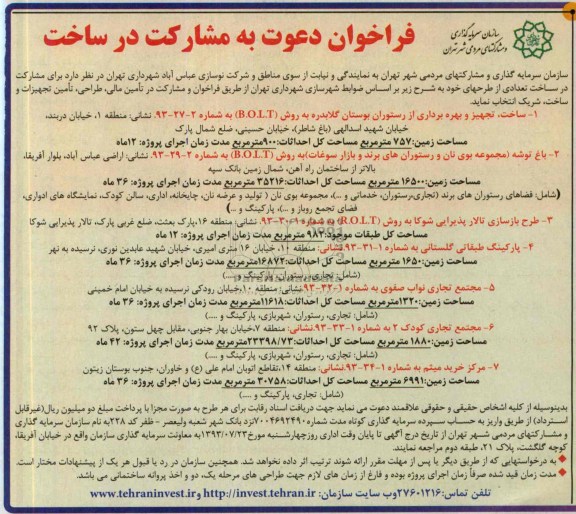 سازمان سرمایه گذاری
ومشارکتهای مردمی شهر تهران
فراخوان دعوت به مشارکت در ساخت
سازمان سرمایه گذاری و مشارکتهای مردمی شهر تهران به نمایندگی و نیابت از سوی مناطق و شرکت نوسازی عباس آباد شهرداری تهران در نظر دارد برای مشارکت
در ساخت تعدادی از طرحهای خود به شرح زیر بر اساس ضوابط شهرسازی شهرداری تهران از طریق فراخوان و مشارکت در تأمین مالی، طراحی، تأمین تجهیزات و
ساخت، شریک انتخاب نماید.
۱- ساخت، تجهیز و بهره برداری از رستوران بوستان گلابدره به روش (B.O.L.T) به شماره ۲-۲۷-۹۳. نشانی: منطقه ۱، خیابان دربند،
خیابان شهید اسدالهی (باغ شاطر)، خیابان حسینی، ضلع شمال پارک
مساحت زمین: ۷۵۷ مترمربع مساحت کل احداثات: ۹۰۰مترمربع مدت زمان اجرای پروژه: ۱۲ماه
۲- باغ توشه (مجموعه بوی نان و رستوران های برند و بازار سوغات)به روش (B.O.L.T) به شماره ۲-۲۹-۹۳. نشانی: اراضی عباس آباد، بلوار آفریقا،
بالاتر از ساختمان راه آهن، شمال زمین بانک سپه
مساحت زمین:۱۶۵۰۰ مترمربع مساحت کل احداثات:۳۵۲۱۶ مترمربع مدت زمان اجرای پروژه: ۳۶ ماه
(شامل: فضاهای رستوران های برند (تجاری،رستوران، خدماتی و ...)، و مجموعه بوی نان ( تولید و عرضه نان، چایخانه، اداری، سالن کودک، نمایشگاه های ادواری،
فضای تجمع روباز و ...)، پارکینگ و ...)
۳- طرح بازسازی تالار پذیرایی شوکا به روش (B.O.L.T) به شماره ۱-۳۰-۹۳. نشانی: منطقه ۱۶،پارک بعثت، ضلع غربی پارک، تالار پذیرایی شوکا
مساحت کل طبقات موجود:۹۸۲ مترمربع مدت زمان اجرای پروژه: ۱۲ ماه
۴- پارکینگ طبقاتی گلستانی به شماره ۱-۳۱-۹۳.نشانی: منطقه ۱۰، خیابان ۱۶ متری امیری، خیابان شهید عابدین نوری، نرسیده به نهر
مساحت زمین:۱۶۵۰ مترمربع مساحت کل احداثات:۱۶۸۷۲مترمربع مدت زمان اجرای پروژه: ۳۶ ماه
(شامل: تجاری، رستوران، پارکینگ و ....)
۵- مجتمع تجاری نواب صفوی به شماره ۱-۳۲-۹۳نشانی: منطقه ۱۰،خیابان رودکی نرسیده به خیابان امام خمینی
مساحت زمین:۱۳۲۰مترمربع مساحت کل احداثات:۱۱۶۱۸مترمربع مدت زمان اجرای پروژه: ۳۶ ماه
(شامل: تجاری، رستوران، شهربازی، پارکینگ و ....)
۶- مجتمع تجاری کودک ۲ به شماره ۱-۳۳-۹۳.نشانی: منطقه ۷،خیابان بهار جنوبی، مقابل چهل ستون، پلاک ۹۲
مساحت زمین:۱۸۸۰ مترمربع مساحت کل احداثات:۲۳۳۹۸/۷۳ مترمربع مدت زمان اجرای پروژه: ۴۲ ماه
(شامل: تجاری، رستوران، شهربازی، پارکینگ و ....)
۷- مرکز خرید میثم به شماره ۱-۳۴-۹۳.نشانی: منطقه ۱۴،تقاطع اتوبان امام علی (ع) و خاوران، جنوب بوستان زیتون
مساحت زمین:۶۹۹۱ مترمربع مساحت کل احداثات:۳۰۷۵۸ مترمربع مدت زمان اجرای پروژه: ۳۶ ماه
(شامل: تجاری، پارکینگ و ....)
بدینوسیله از کلیه اشخاص حقیقی و حقوقی علاقمند دعوت می نماید جهت دریافت اسناد رقابت برای هر طرح به صورت مجزا با پرداخت مبلغ دو میلیون ریال(غیرقابل
استرداد) از طریق واریز به حساب سپرده سرمایه گذاری کوتاه مدت شماره۷۰۰۴۶۹۲۴۹۰نزد بانک شهر شعبه ولیعصر - ظفر کد ۲۲۸به نام سازمان سرمایه گذاری
و مشارکتهای مردمی شهر تهران از تاریخ درج آگهی تا پایان وقت اداری روزچهارشنبه مورخ۱۳۹۳/۰۷/۲۳به معاونت سرمایه گذاری سازمان واقع در خیابان آفریقا،
کوچه گلگشت، پلاک ۲۱، طبقه دوم مراجعه نمایند.
به درخواستهایی که از طریق دیگر یا پس از مهلت مقرر ارائه شوند ترتیب اثر داده نخواهد شد. همچنین سازمان در رد یا قبول هر یک از پیشنهادات مختار است.
مدت زمان قید شده صرفاً زمان اجرای پروژه بوده و فارغ از زمان های لازم جهت طراحی های مرحله یک، دو و اخذ پروانه ساختمانی می باشد.
تلفن تماس:۲۷۶۰۱۲۱۶وب سایت سازمان: http://invest.tehran.ir و www.tehraninvest.ir